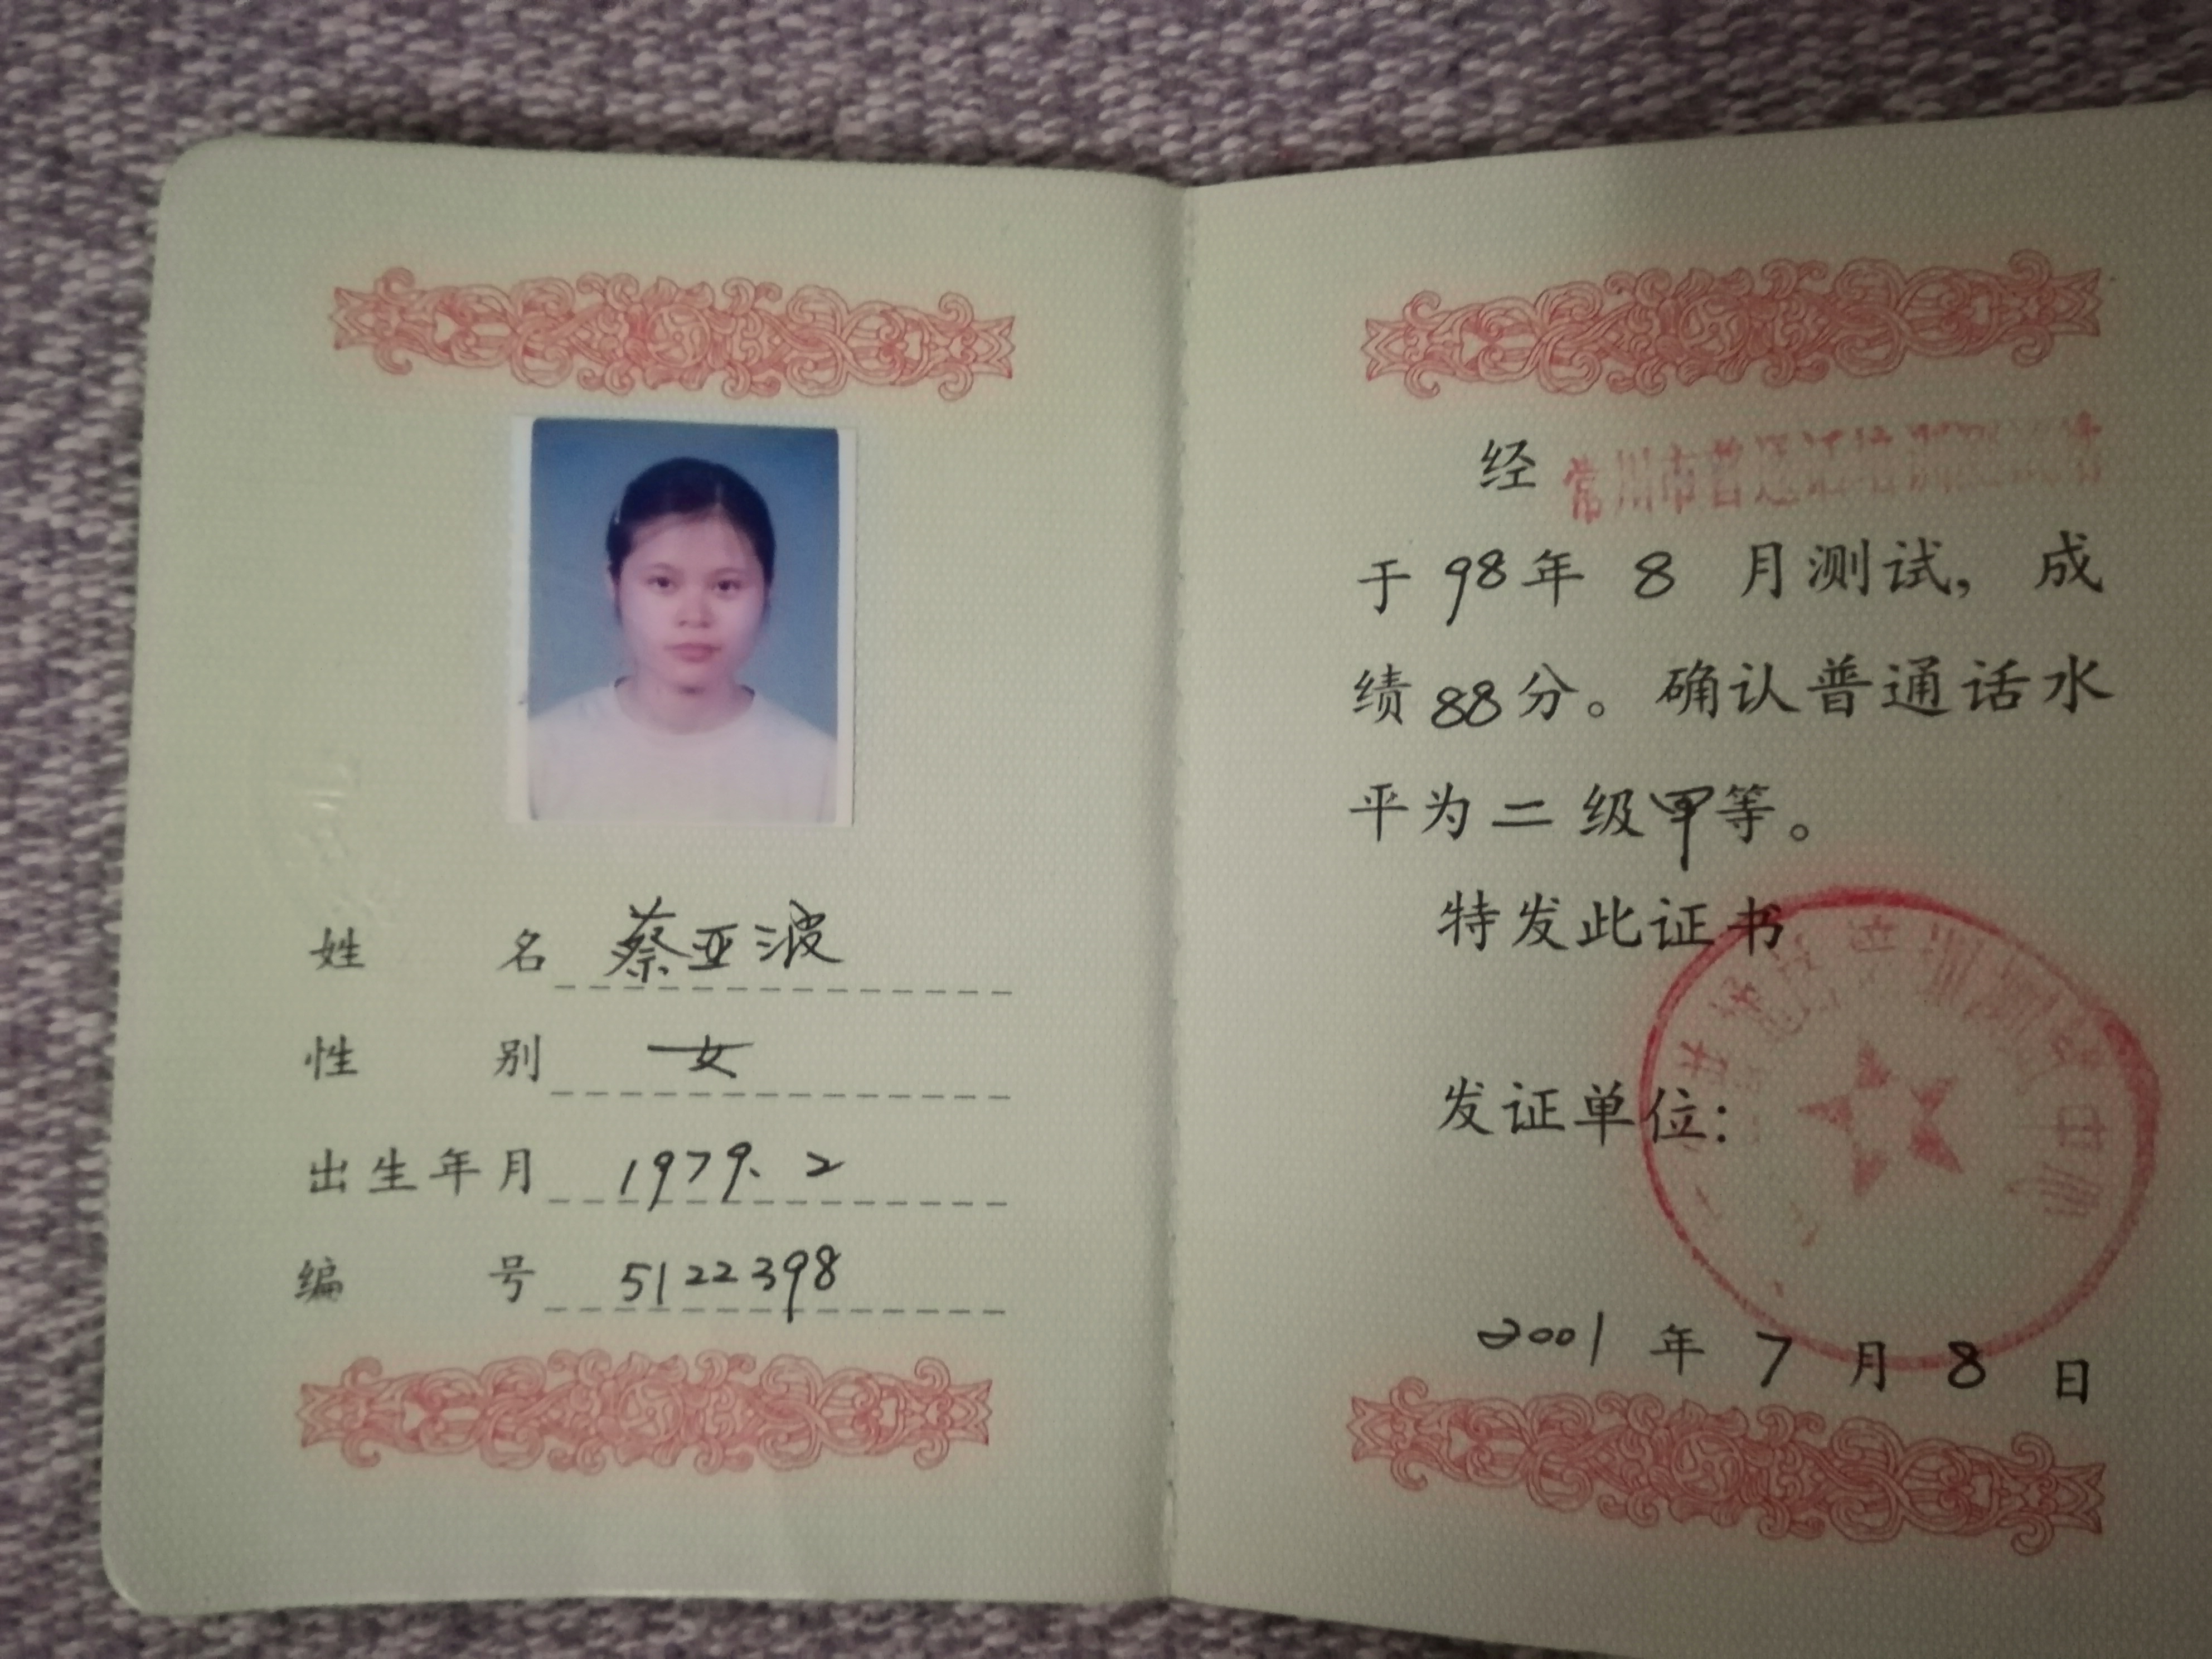 姓名 蔡亚波
性别 女
出生年月 1979.2
编号 5122398
经 常州市普通话培训测试
于98年8月测试，成
绩88分。确认普通话水
平为二级甲等。
特发此证书
发证单位：
2001年7月8日